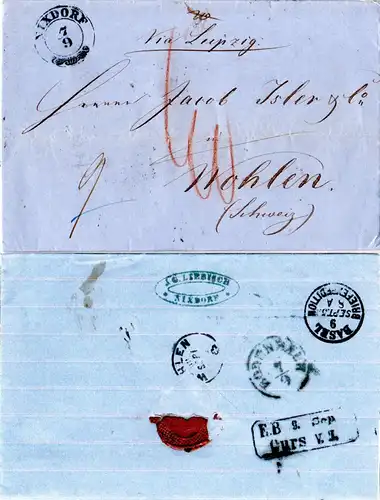 NIXDORF
7
9
Via Leipzig.
Herren Jacob Isler & Co
in
Wohlen.
(Schweiz)
J. G. LIEBISCH
NIXDORF
BASEL
9
SEPT.
8 A
BRIEFEXPEDITION
BODENBACH
7
9
E.B 8. Sep
Curs V. I.